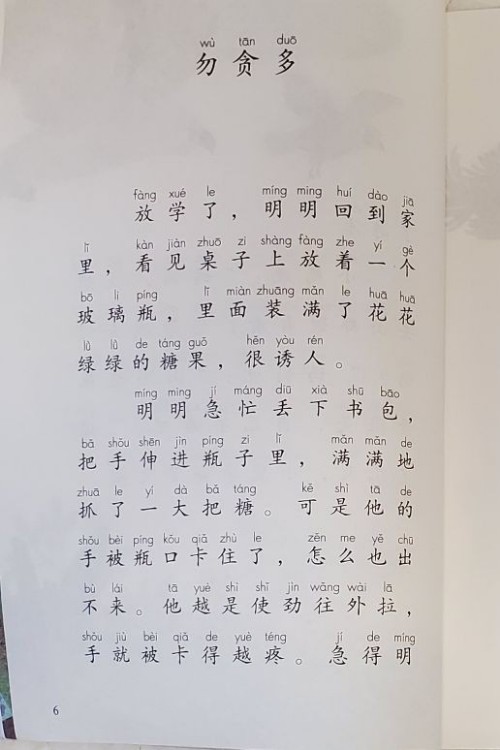 wù tān duō
勿贪多
fàng xué le míng míng huí dào jiā
放学了，明明回到家
lǐ kàn jiàn zhuō zi shàng fàng zhe yí gè
里，看见桌子上放着一个
bō li píng lǐ miàn zhuāng mǎn le huā huā
玻璃瓶，里面装满了花花
lǜ lǜ de táng guǒ hěn yòu rén
绿绿的糖果，很诱人。
míng míng jí máng diū xià shū bāo
明明急忙丢下书包，
bǎ shǒu shēn jìn píng zi lǐ mǎn mǎn de
把手伸进瓶子里，满满地
zhuā le yí dà bǎ táng kě shì tā de
抓了一大把糖。可是他的
shǒu bèi píng kǒu qiǎ zhù le zěn me yě chū
手被瓶口卡住了，怎么也出
bù lái tā yuè shì shǐ jìn wǎng wài lā
不来。他越是使劲往外拉，
shǒu jiù bèi qiǎ de yuè téng jí de míng
手就被卡得越疼。急得明
6